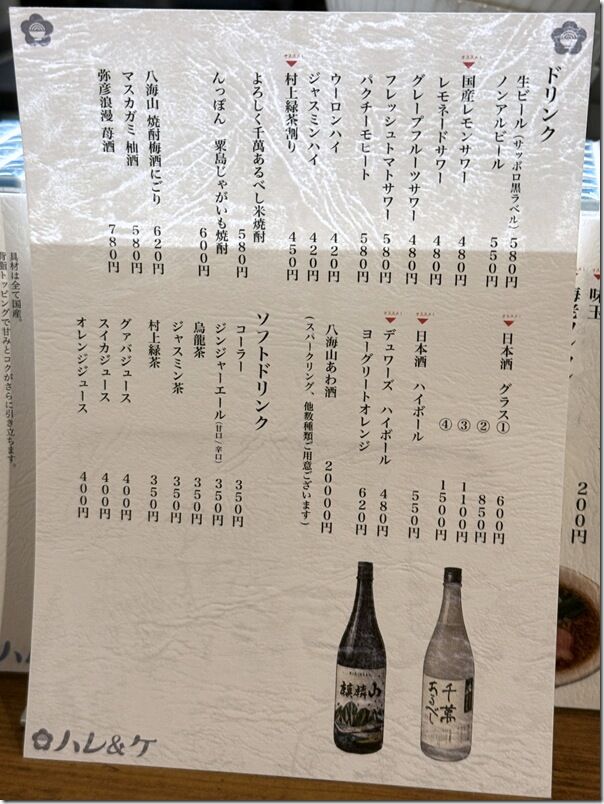 ドリンク
生ビール(サッポロ黒ラベル) 580円
ノンアルビール 550円
オススメ!
国産レモンサワー 480円
レモネードサワー 480円
グレープフルーツサワー 480円
フレッシュトマトサワー 580円
パクチーモヒート 580円
ウーロンハイ 420円
ジャスミンハイ 420円
オススメ!
村上緑茶割り 450円
よろしく千萬あるべし米焼酎 580円
んっぽん 粟島じゃがいも焼酎 600円
八海山 焼酎梅酒にごり 620円
マスカガミ 柚酒 580円
弥彦浪漫 苺酒 780円
オススメ!
日本酒 グラス① 600円
② 850円
③ 1100円
④ 1500円
オススメ!
日本酒 ハイボール 550円
オススメ!
デュワーズ ハイボール 480円
ヨーグリートオレンジ 620円
八海山あわ酒 20000円
(スパークリング、他数種類ご用意ございます)
ソフトドリンク
コーラー 350円
ジンジャーエール(甘口/辛口) 350円
烏龍茶 350円
ジャスミン茶 350円
村上緑茶 350円
グァバジュース 400円
スイカジュース 400円
オレンジジュース 400円
麒麟山
千萬
あるべし
ハレ&ケ
味玉
200円
具材は全て国産。
背脂トッピングで甘みとコクがさらに引き立ちます。